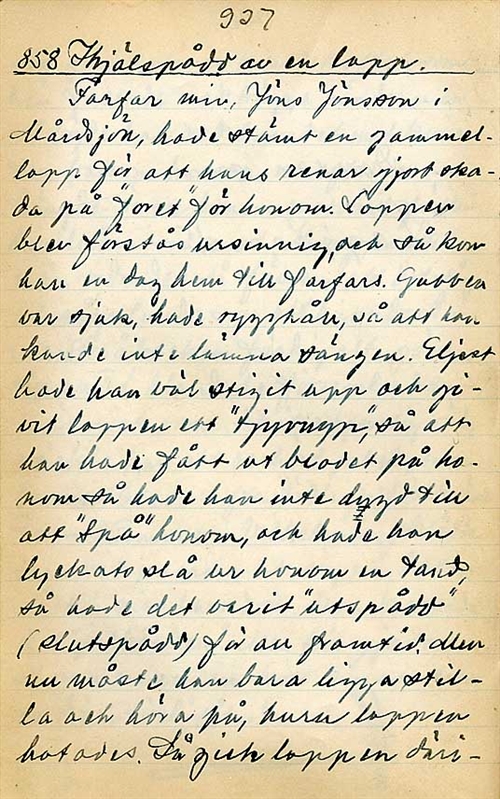 927
858 Ihjälspådd av en lapp.
Farfar min, Jöns Jönsson i
Mårdsjön, hade stämt en gammel-
lapp för att hans renar gjort ska-
da på "foret" för honom. Lappen
blev förstås ursinnig, och så kom
han en dag hem till farfars. Gubben
var sjuk, hade ryggskått, så att han
kunde inte lämna sängen. Eljest
hade han väl stigit upp och gi-
vit lappen ett "tjyvnyp", så att
han hade fått ut blodet på ho-
nom så hade han inte dygd till
att "spå" honom, och hade han
lyckats slå ur honom en tand,
så hade det varit "utspådd"
(slutspådd) för all framtid. Men
nu måste han bara ligga stil-
la och höra på, huru lappen
hotades. Så gick lappen däri-